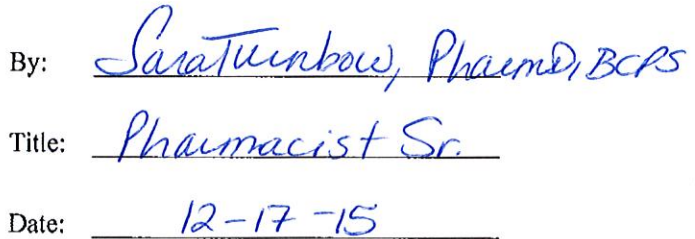 By: Sara Turnbow, PharmD, BCPS
Title: Pharmacist Sr.
Date: 12-17-15